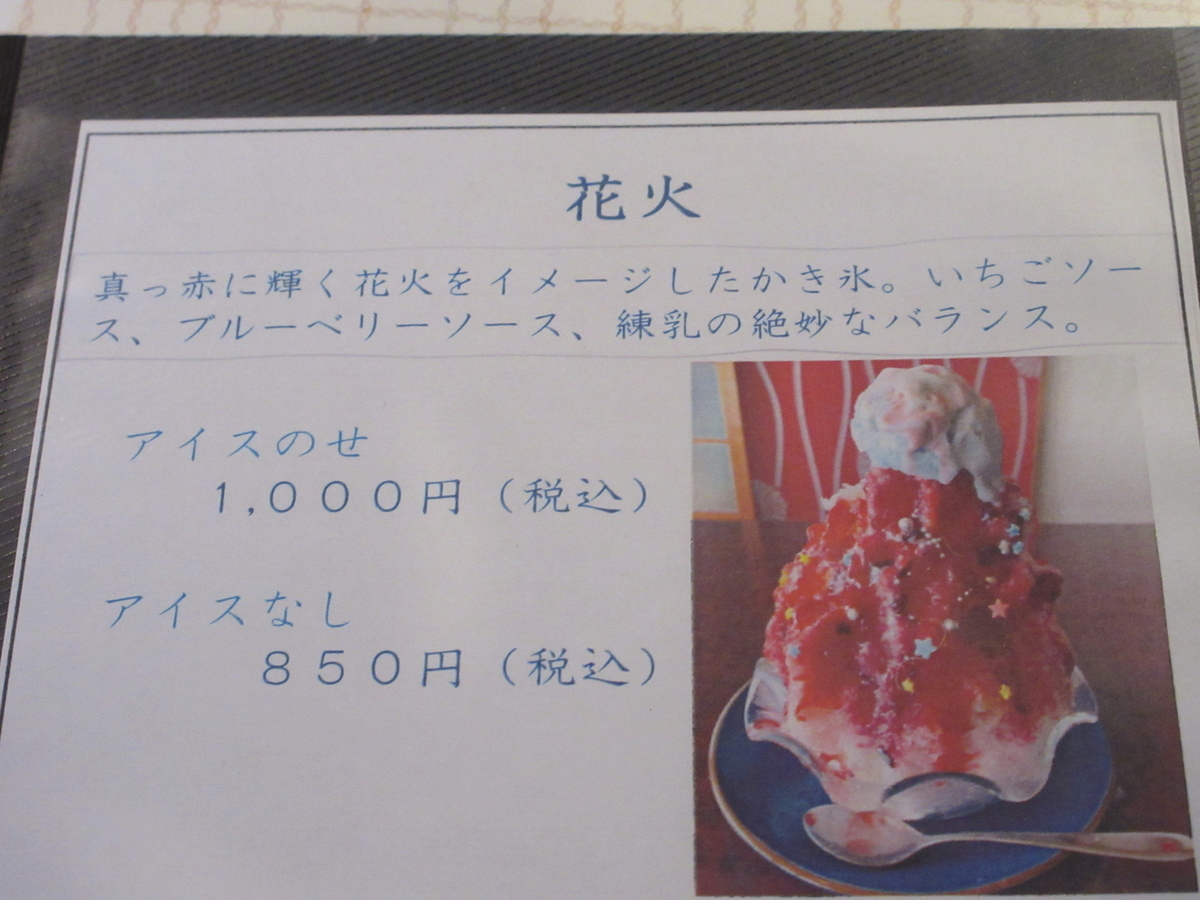 花火
真っ赤に輝く花火をイメージしたかき氷。いちごソー
ス、ブルーベリーソース、練乳の絶妙なバランス。
アイスのせ
1,０００円（税込）
アイスなし
８５０円（税込）